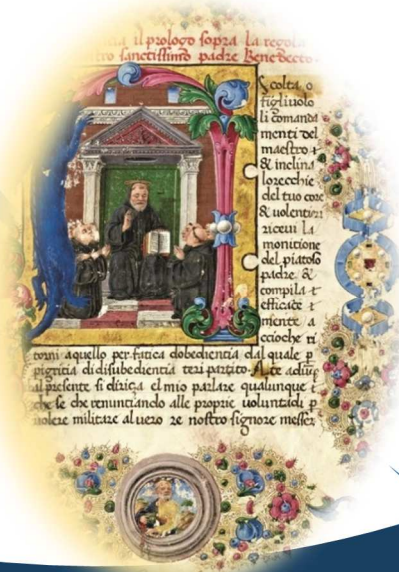 il prologo sopra la regola
sanctissimo padre Benedecto
Scolta o
figliuolo
li comanda
menti del
maestro
& inclina
lorecchie
del tuo core
& uolentieri
riceui la
monitione
del piatoso
padre &
compila
efficace
mente a
ccioche ri
torni aquello per fatica dobedientia dal quale p
pigritia di disubedientia teri partito. A te
al presente si diriça el mio parlare qualunque
che se che renuntiando alle proprie uoluntadi p
uolere militare al uero re nostro signore messer